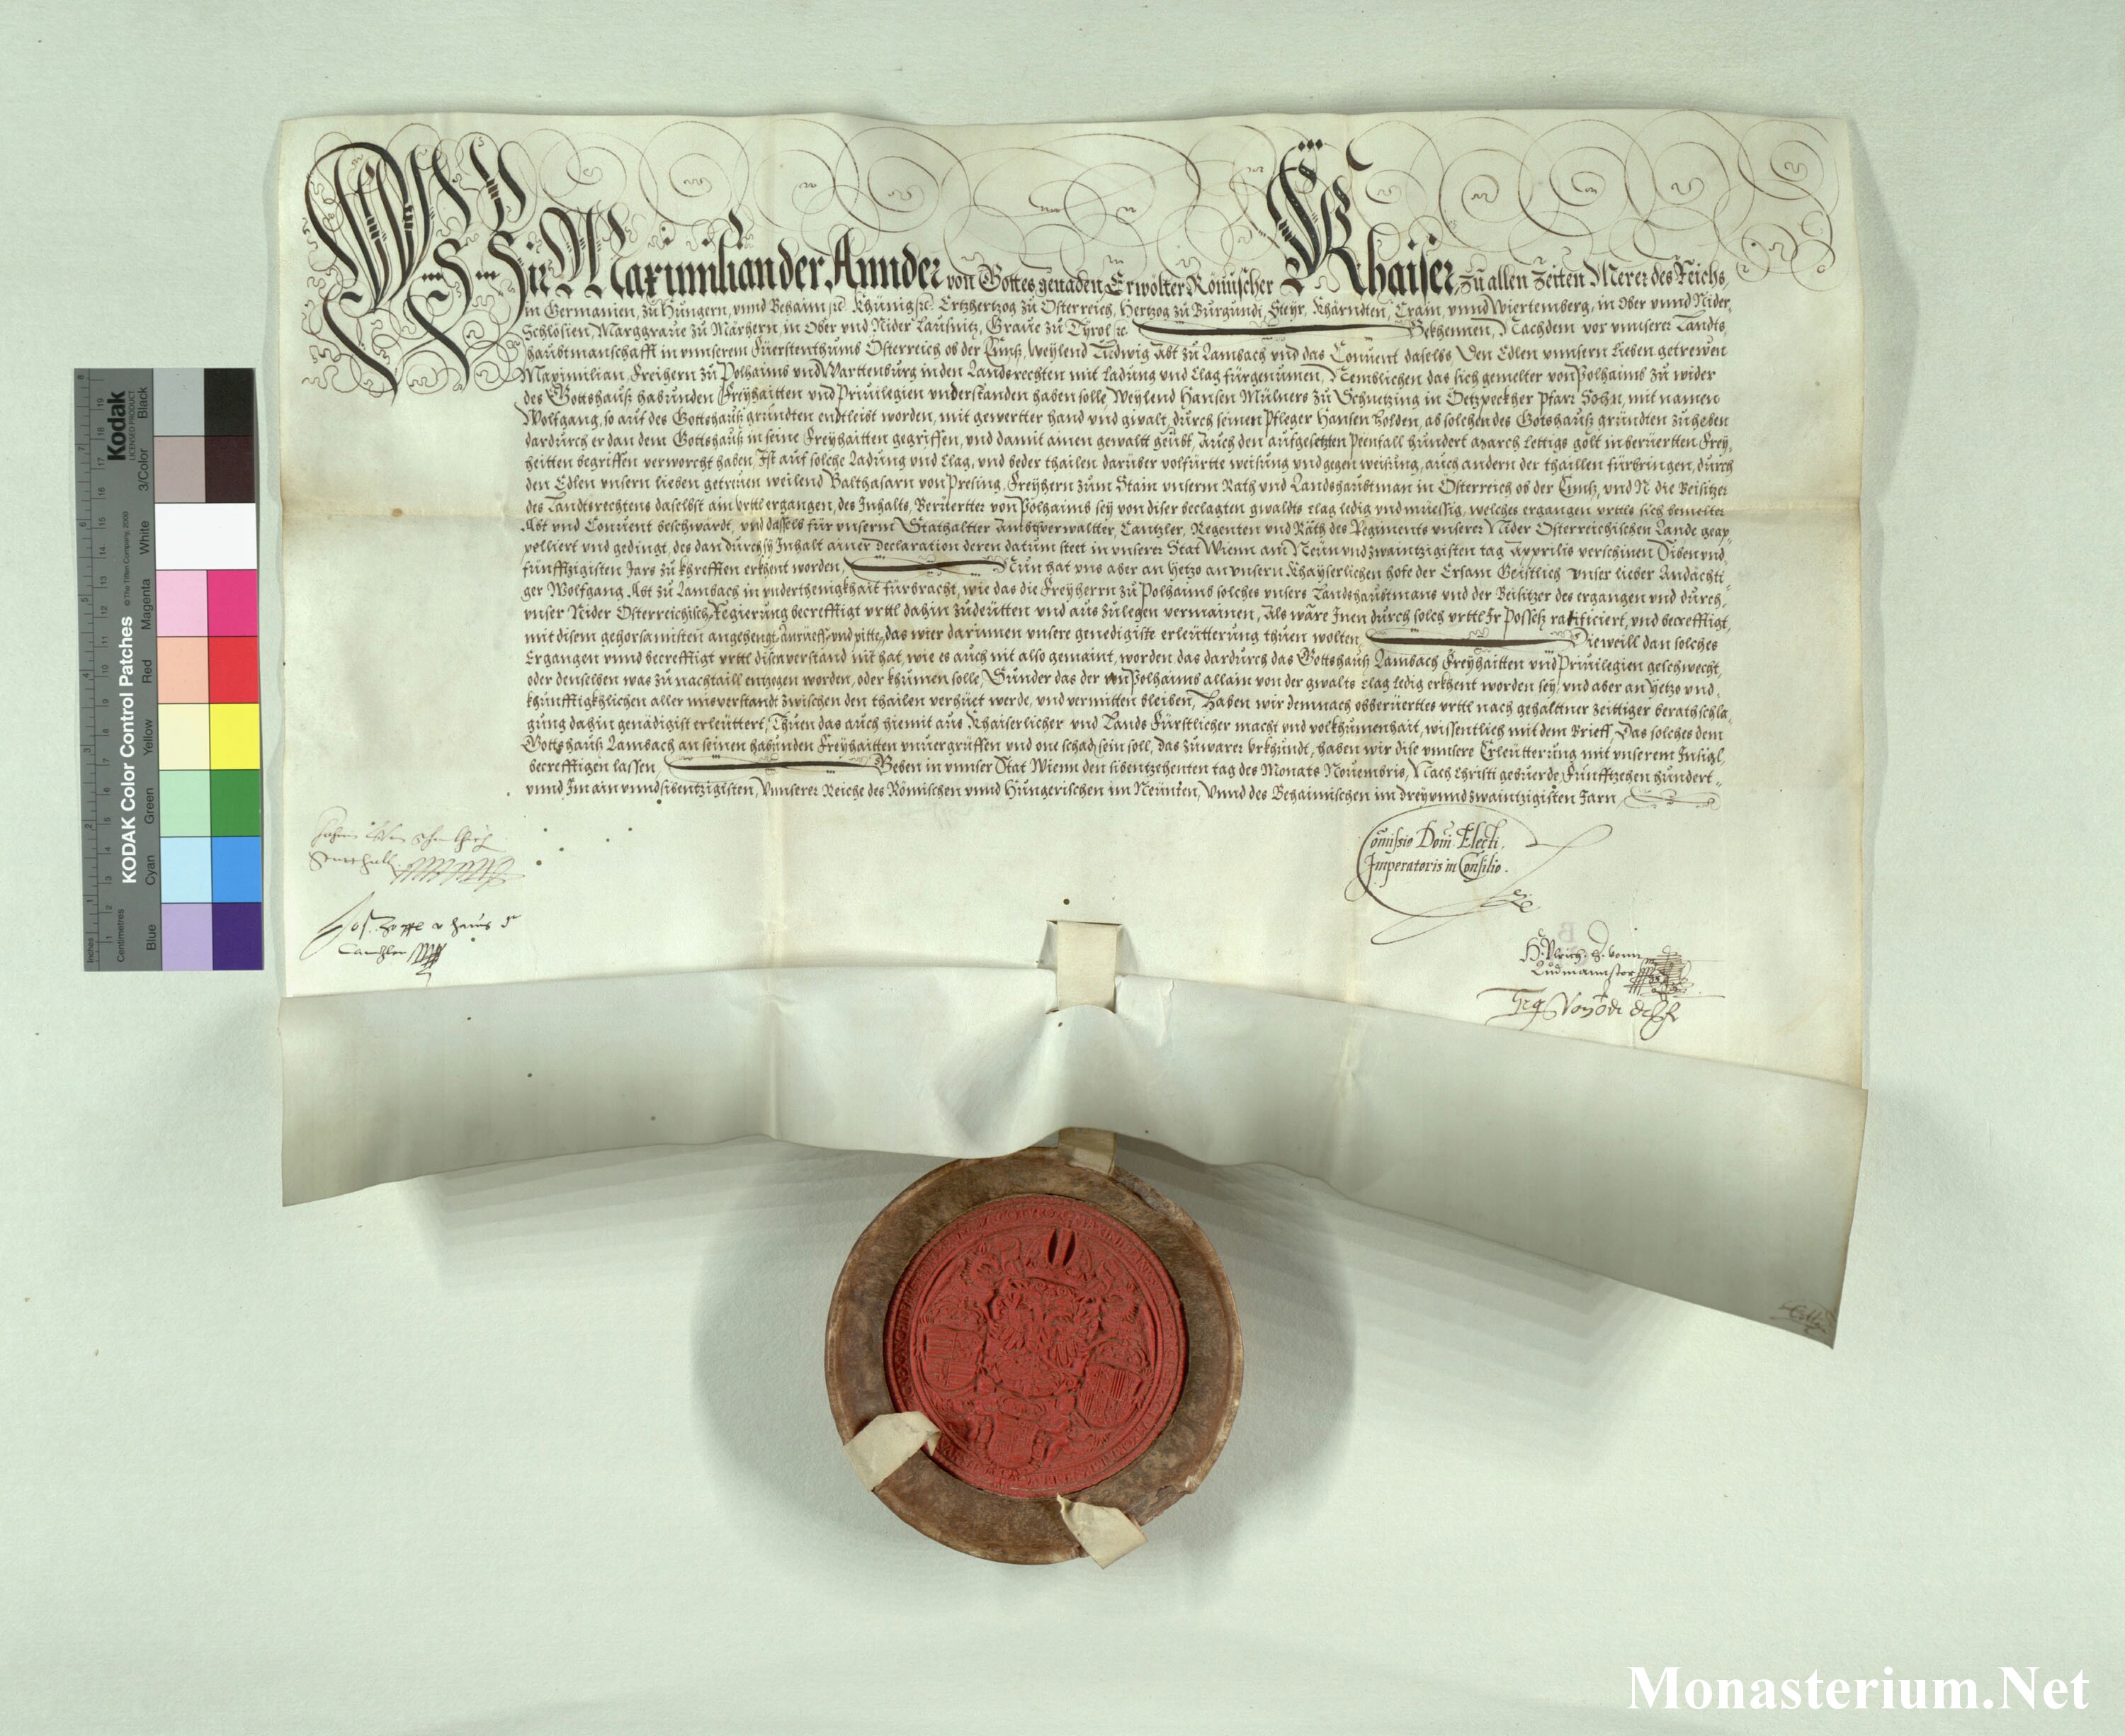 Wir Maximilian der Annder von Gottes genaden Erwölter Römischer Khaiser, zu allen zeiten Merer des Reichs,
in Germanien, zu Hungern, vnnd Behaim ꝛc. Khünig ꝛc. Ertzhertzog zu Österreich, Hertzog zu Burgundi, Steyr, Khärndten, Crain, vnnd Wiertemberg, in Ober vnnd Nider,
Schlösien, Marggraue zu Märhern, in Ober vnd Nider Lausnitz, Graue zu Tyrol ꝛc. Bekhennen, Nachdem vor vnnserer Landts,
haubtmanschafft in vnnserem Füerstenthumb Österreich ob der Ennß, Weylend Ludwig Abt zu Lambach vnd das Conuent daselbs, Den Edlen vnnsern lieben getrewen
Maximilian, Freihern zu Polhaimb vnd Warttenburg in den Landsrechten mit ladung vnd clag fürgenumen, Nemblichen das sich gemelter von Polhaimb zu wider
des Gottshauß habunden Freyhaitten vnd Priuilegien vnderstanden haben solle, Weylend Hansen Mülners zu Schnetzing in Oetzpeckher Pfarr Sohn, mit namen
Wolfgang, so auf des Gottshauß grundten endtleibt worden, mit gewertter hand vnd gwalt, durch seinen Pfleger Hansen Bolden, ab solchen des Gotshauß gründten zuheben
dardurch er dan dem Gottshauß in seine Freyhaitten gegriffen, vnd damit ainen gewaltt geübt, Auch den aufgesetzten Peenfall hundert march lettigs golt in berüertten Frey,
heitten begriffen verworcht haben, Ist auf solche Ladung vnd clag, vnd beder thailen darüber volfürtte weisung vnd gegen weisung, auch andern der thaillen fürbringen, durch
den Edlen vnsern lieben getreuen weilend Balthasarn von Presing, Freyhern zum Stain vnserm Rath vnd Landshaubtman in Österreich ob der Ennß, vnd N. die Beisitzer
des Landtsrechtens daselbst ain vrttl ergangen, des Inhalts, Berüertter von Polhaimb sey von diser beclagten gwaldts clag ledig vnd müessig, welches ergangen vrttls sich bemelter
Abt vnd Conuent beschwärdt, vnd dasselb für vnsern Stathaltter Ambtsverwaltter, Cantzler, Regenten vnd Räth des Regiments vnserer Nider Österreichischen Lande geap,
pelliert vnd gedingt, des dan durch sy Inhalt ainer Declaration deren datum steet in vnserer Stat Wienn am Neün vnd zwaintzigisten tag Apprilis verschinen Siben vnd,
fünffzigisten Jars zu khrefften erkhent worden, Nun hat vns aber an yetzo an vnsern Khayserlichen hofe der Ersam Geistlich vnser lieber Andächti,
ger Wolfgang Abt zu Lambach in vnderthenigkhait fürbracht, wie das die Freyherrn zu Polhaimb solches vnsers Landshaubtmans vnd der Beisitzer des ergangen vnd durch,
vnser Nider Österreichisch Regierung becrefftigt vrttl dahin zudeütten vnd aus zulegen vermainen, Als wäre Inen durch solch vrttl Ir Possetz ratificiert, vnd becrefftigt,
mit disem gehorsamisten angehengt anrueff vnd pitte, das wier darinnen vnsere genedigiste erleütterung thuen wolten, Dieweill dan solches
Ergangen vnnd becrefftigt vrttl disen verstand nit hat, wie es auch nit also gemaint, worden das dardurch das Gottshauß Lambach Freyhaitten vnd Priuilegien geschwecht,
oder denselben was zu nachtaill entzogen worden, oder khumen solle, Sunder das der von Polhaimb allain von der gwalts clag ledig erkhent worden sey, vnd aber an yetzo vnd,
khünfftigkhlichen aller misverstandt zwischen den thailen verhüet werde, vnd vermitten bleiben, Haben wir demnach obberüertes vrttl nach gehaltner zeittiger berathschla,
gung dahin genädigist erleüttert, Thuen das auch hiemit aus Khaiserlicher vnd Lands Fürstlicher macht vnd volkhumenhait, wissentlich mit dem Brieff, Das solches dem
Gottshauß Lambach an seinen habunden Freyhaitten vnuergriffen vnd one schad sein soll, das zu warer vrkhundt, haben wir dise vnnsere Erleütterung mit vnserem Insigl,
becrefftigen lassen, Geben in vnnser Stat Wienn den sibentzehenten tag des Monats Nouembris, Nach Christi geburde Fünfftzehen hundert,
vnnd Im ain vnnd sibentzigisten, Vnnserer Reiche des Römischen vnnd Hungerischen im Neünten, Vnnd des Behaimischen im dreyvnndzwaintzigisten Jarn
Comissio Domi Electi
Imperatoris in Consilio.
Cantzler
KODAK Color Control Patches
Kodak
LICENSED PRODUCT
© The Tiffen Company, 2000
Inches
Centimetres
Blue
Cyan
Green
Yellow
Red
Magenta
White
3/Color
Black
Monasterium.Net